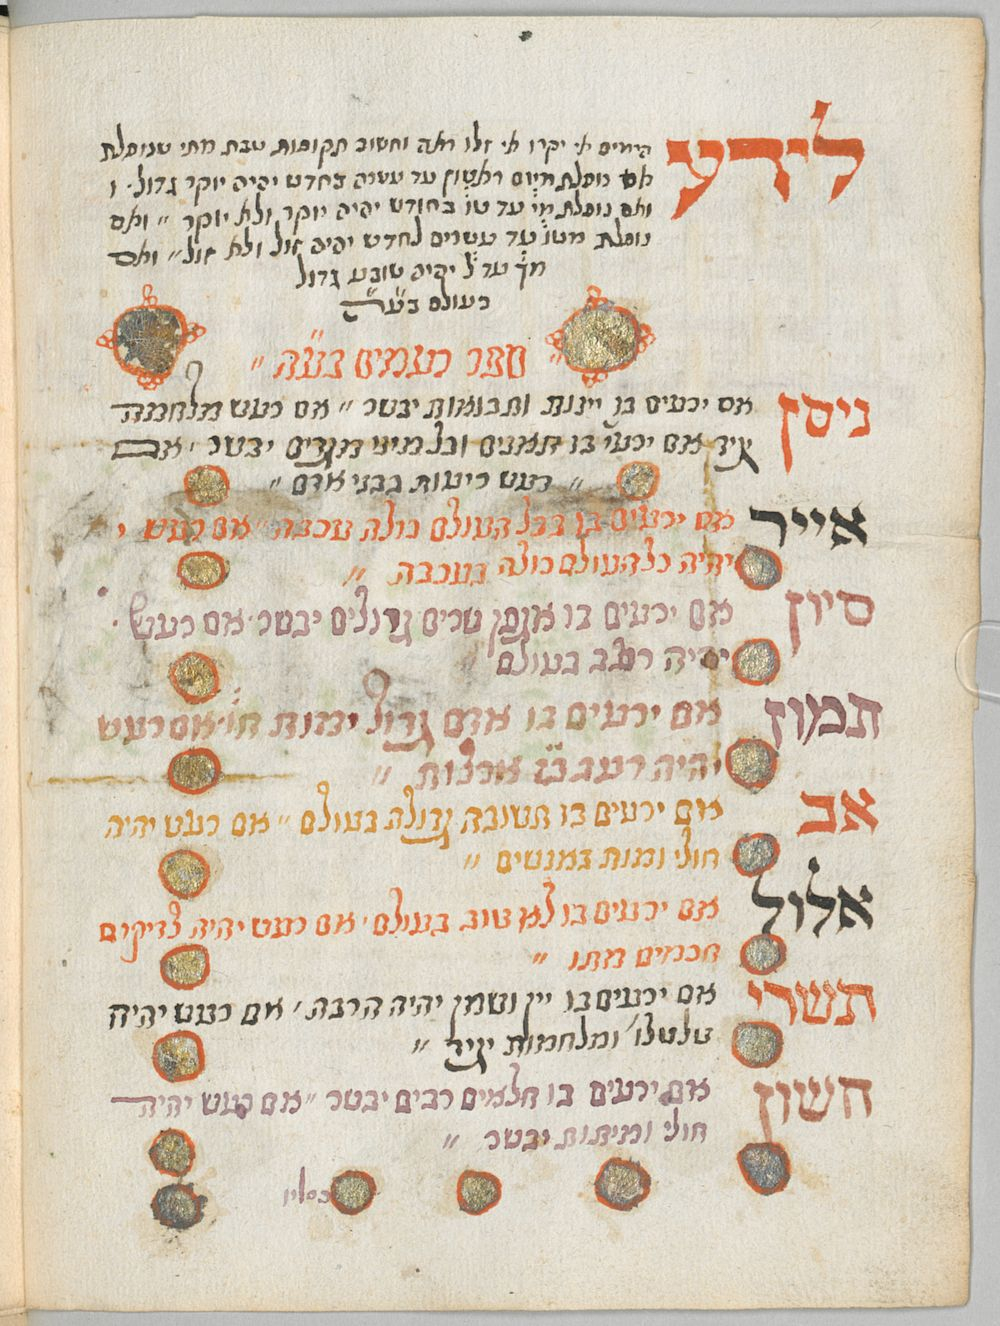 לידע
הימים אי יקרו אי זלו ראה וחשוב תקופות טבת מתי שנופלת
אם נופלת מיום ראשון עד עשרה בחדש יהיה יוקר גדול ו
ואם נופלת מי עד טו בחודש יהיה יוקר ולא יוקר " ואם
נופלת מטו עד עשרים לחדש יהיה זול ולא זול " ואם
מך עד ל יהיה שובע גדול
בעולם בע״ה
ספר רעמים בעה "
ניסן
אם ירעים בו יינות ותבואות יבשר " אם רעש מלחמה
יגיד אם ירעי בו תאנים וכל מיני מגדים יבשר ' אם
" רעש ריעות בבני אדם "
אייר
אם ירעים בו בכל העולם כולה ערבה " אם רעש י
יהיה כל העולם כולה בערבה "
סיון
אם ירעים בו שרים גדולים יבשר אם רעש
יהיה רעב בעולם
תמוז
אם ירעים בו אדם גדול ימות חו אם רעש
יהיה רעב ארצות "
אב
אם ירעים בו תשובה גדולה בעולם " אם רעש יהיה
חולי ומות בנשים "
אלול
אם ירעים בו לא טוב בעולם ' אם רעש יהיה צדיקים
חכמים מתו "
תשרי
אם ירעים בו יין ושמן יהיה הרבה ' אם רעש יהיה
טלטלו' ומלחמות יגיד "
חשון
אם ירעים בו חלאים רבים יבשר " אם רעש יהיה
חולי ומיתות יבשר "
כסליו